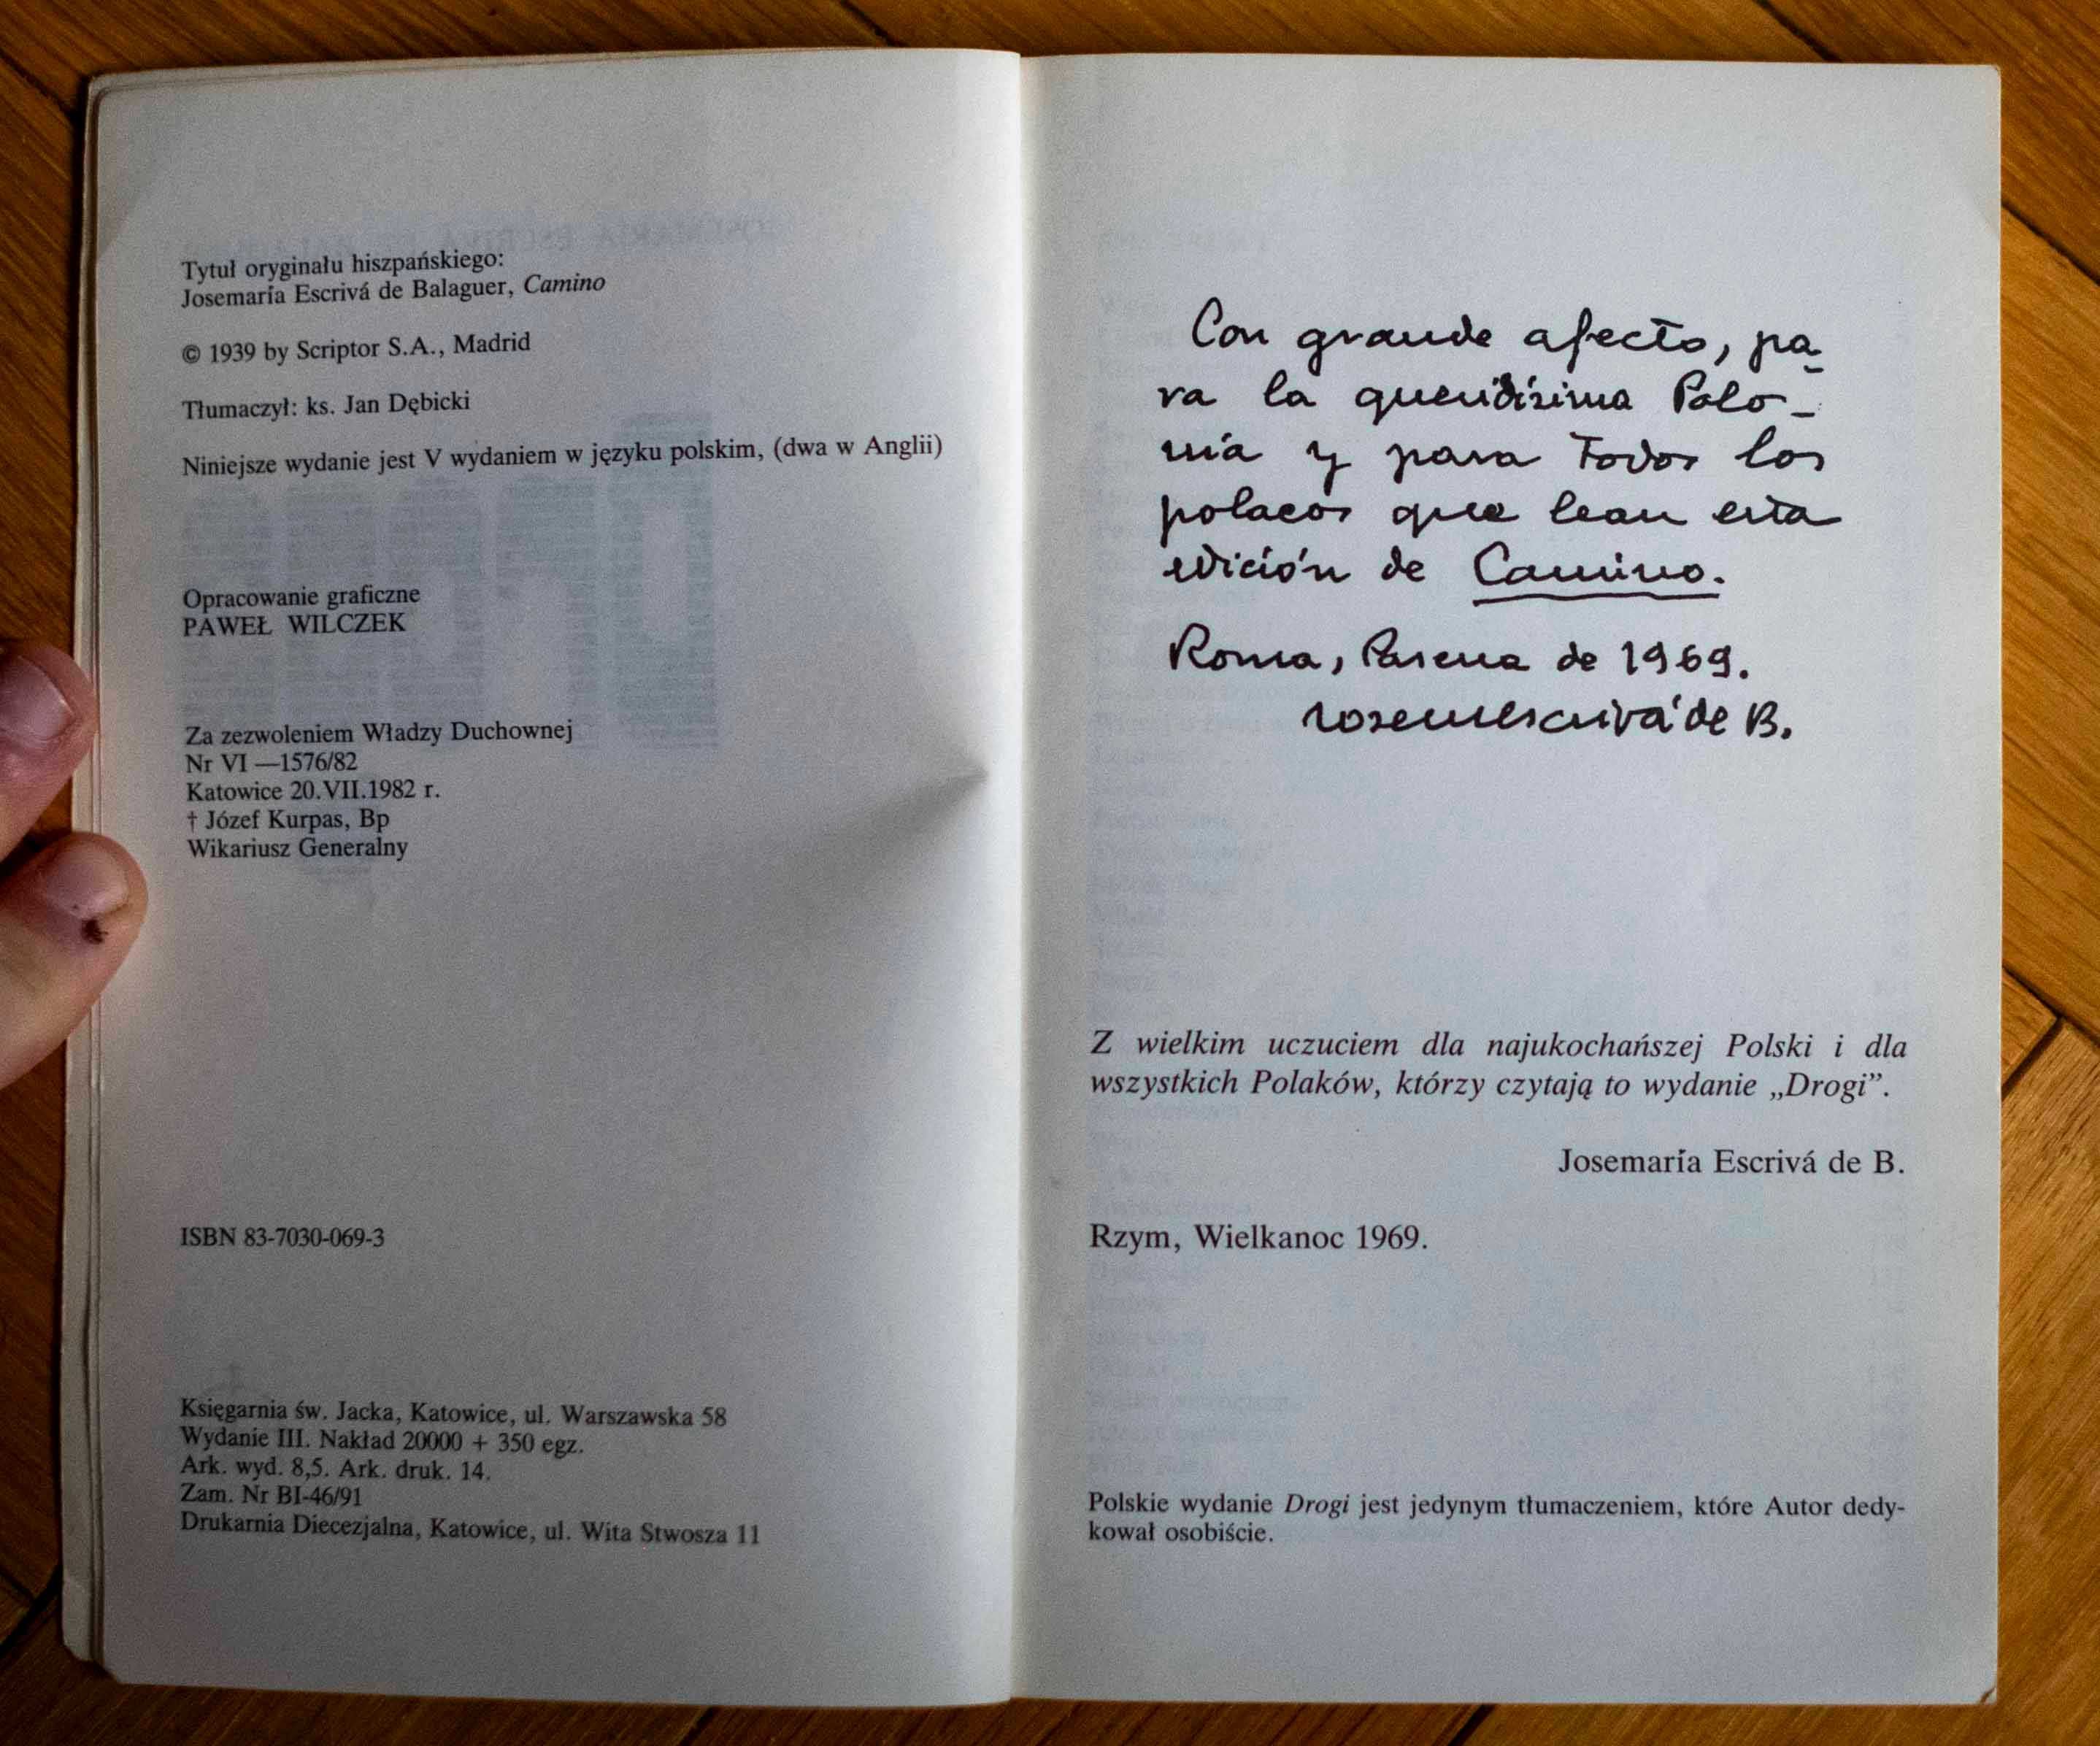 Tytuł oryginału hiszpańskiego:
Josemaría Escrivá de Balaguer, Camino
© 1939 by Scriptor S.A., Madrid
Tłumaczył: ks. Jan Dębicki
Niniejsze wydanie jest V wydaniem w języku polskim, (dwa w Anglii)
Opracowanie graficzne
PAWEŁ WILCZEK
Za zezwoleniem Władzy Duchownej
Nr VI —1576/82
Katowice 20.VII.1982 r.
† Józef Kurpas, Bp
Wikariusz Generalny
ISBN 83-7030-069-3
Księgarnia św. Jacka, Katowice, ul. Warszawska 58
Wydanie III. Nakład 20000 + 350 egz.
Ark. wyd. 8,5. Ark. druk. 14.
Zam. Nr BI-46/91
Drukarnia Diecezjalna, Katowice, ul. Wita Stwosza 11
Con grande afecto, pa-
ra la queridísima Polo-
nia y para todos los
polacos que lean esta
edición de Camino.
Roma, Pascua de 1969.
Josemaría Escrivá de B.
Z wielkim uczuciem dla najukochańszej Polski i dla
wszystkich Polaków, którzy czytają to wydanie „Drogi”.
Josemaría Escrivá de B.
Rzym, Wielkanoc 1969.
Polskie wydanie Drogi jest jedynym tłumaczeniem, które Autor dedy-
kował osobiście.